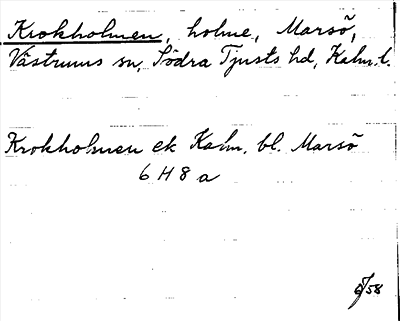 Krokholmen, holme, Marsö,
Västrums sn, Södra Tjusts hd, Kalm. l.
Krokholmen ek Kalm. bl. Marsö
6 H 8 a
58